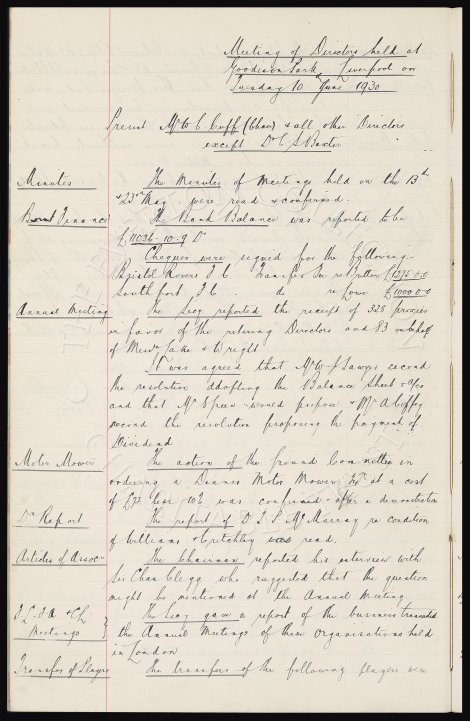 Meeting of Directors held at
Goodison Park, Liverpool on
Tuesday 10 June 1930
Present Mr W C Cuff (Chair) & all other Directors
except Dr C S Baxter
Minutes The Minutes of Meetings held on the 13th
& 23rd May were read & confirmed.
Finance The Bank Balance was reported to be
£11026.10.9 Dr
Cheques were signed for the following:
Bristol Rovers F C Transfer Fee re £1375.0.0
Southport F C do re Lowe £1000.0.0
Annual Meeting The Secy reported the receipt of 328 proxies
in favor of the retiring Directors and 83 on behalf
of Messrs Lake & Wright
It was agreed that Mr W J Sawyer second
the resolution adopting the Balance Sheet &
and that Mr Green would propose & Mr A Coffey
second the resolution proposing the payment of
Dividend
Motor Mower The action of the Ground Committee in
ordering a Dennis Motor Mower at a cost
of £72 less 10% was confirmed - after a demonstration
Dr Report The report of D. J. S. McMurray re condition
of Williams & Critchley was read.
Articles of Assoc The Chairman reported his interview with
Sir Chas Clegg who suggested that the question
might be mentioned at the Annual Meeting.
F.L. F.A. &
Meetings The Secy gave a report of the business transacted
the Annual Meetings of these Organisations held
in London
Transfer of Players The transfers of the following players were